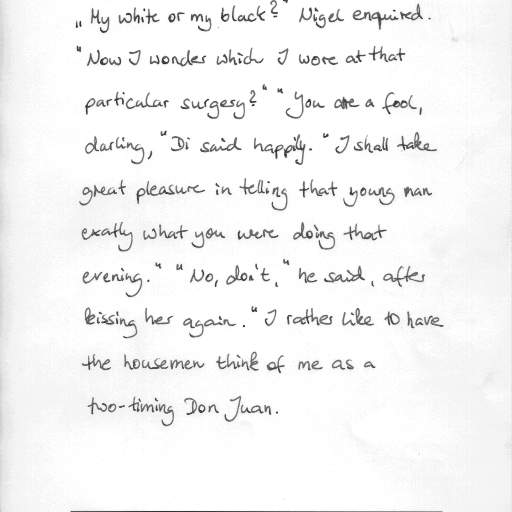 „My white or my black?" Nigel enquired.
"Now I wonder which I wore at that
particular surgery?" "You are a fool,
darling," Di said happily. "I shall take
great pleasure in telling that young man
exatly what you were doing that
evening." "No, don't," he said, after
kissing her again. "I rather like to have
the housemen think of me as a
two-timing Don Juan.